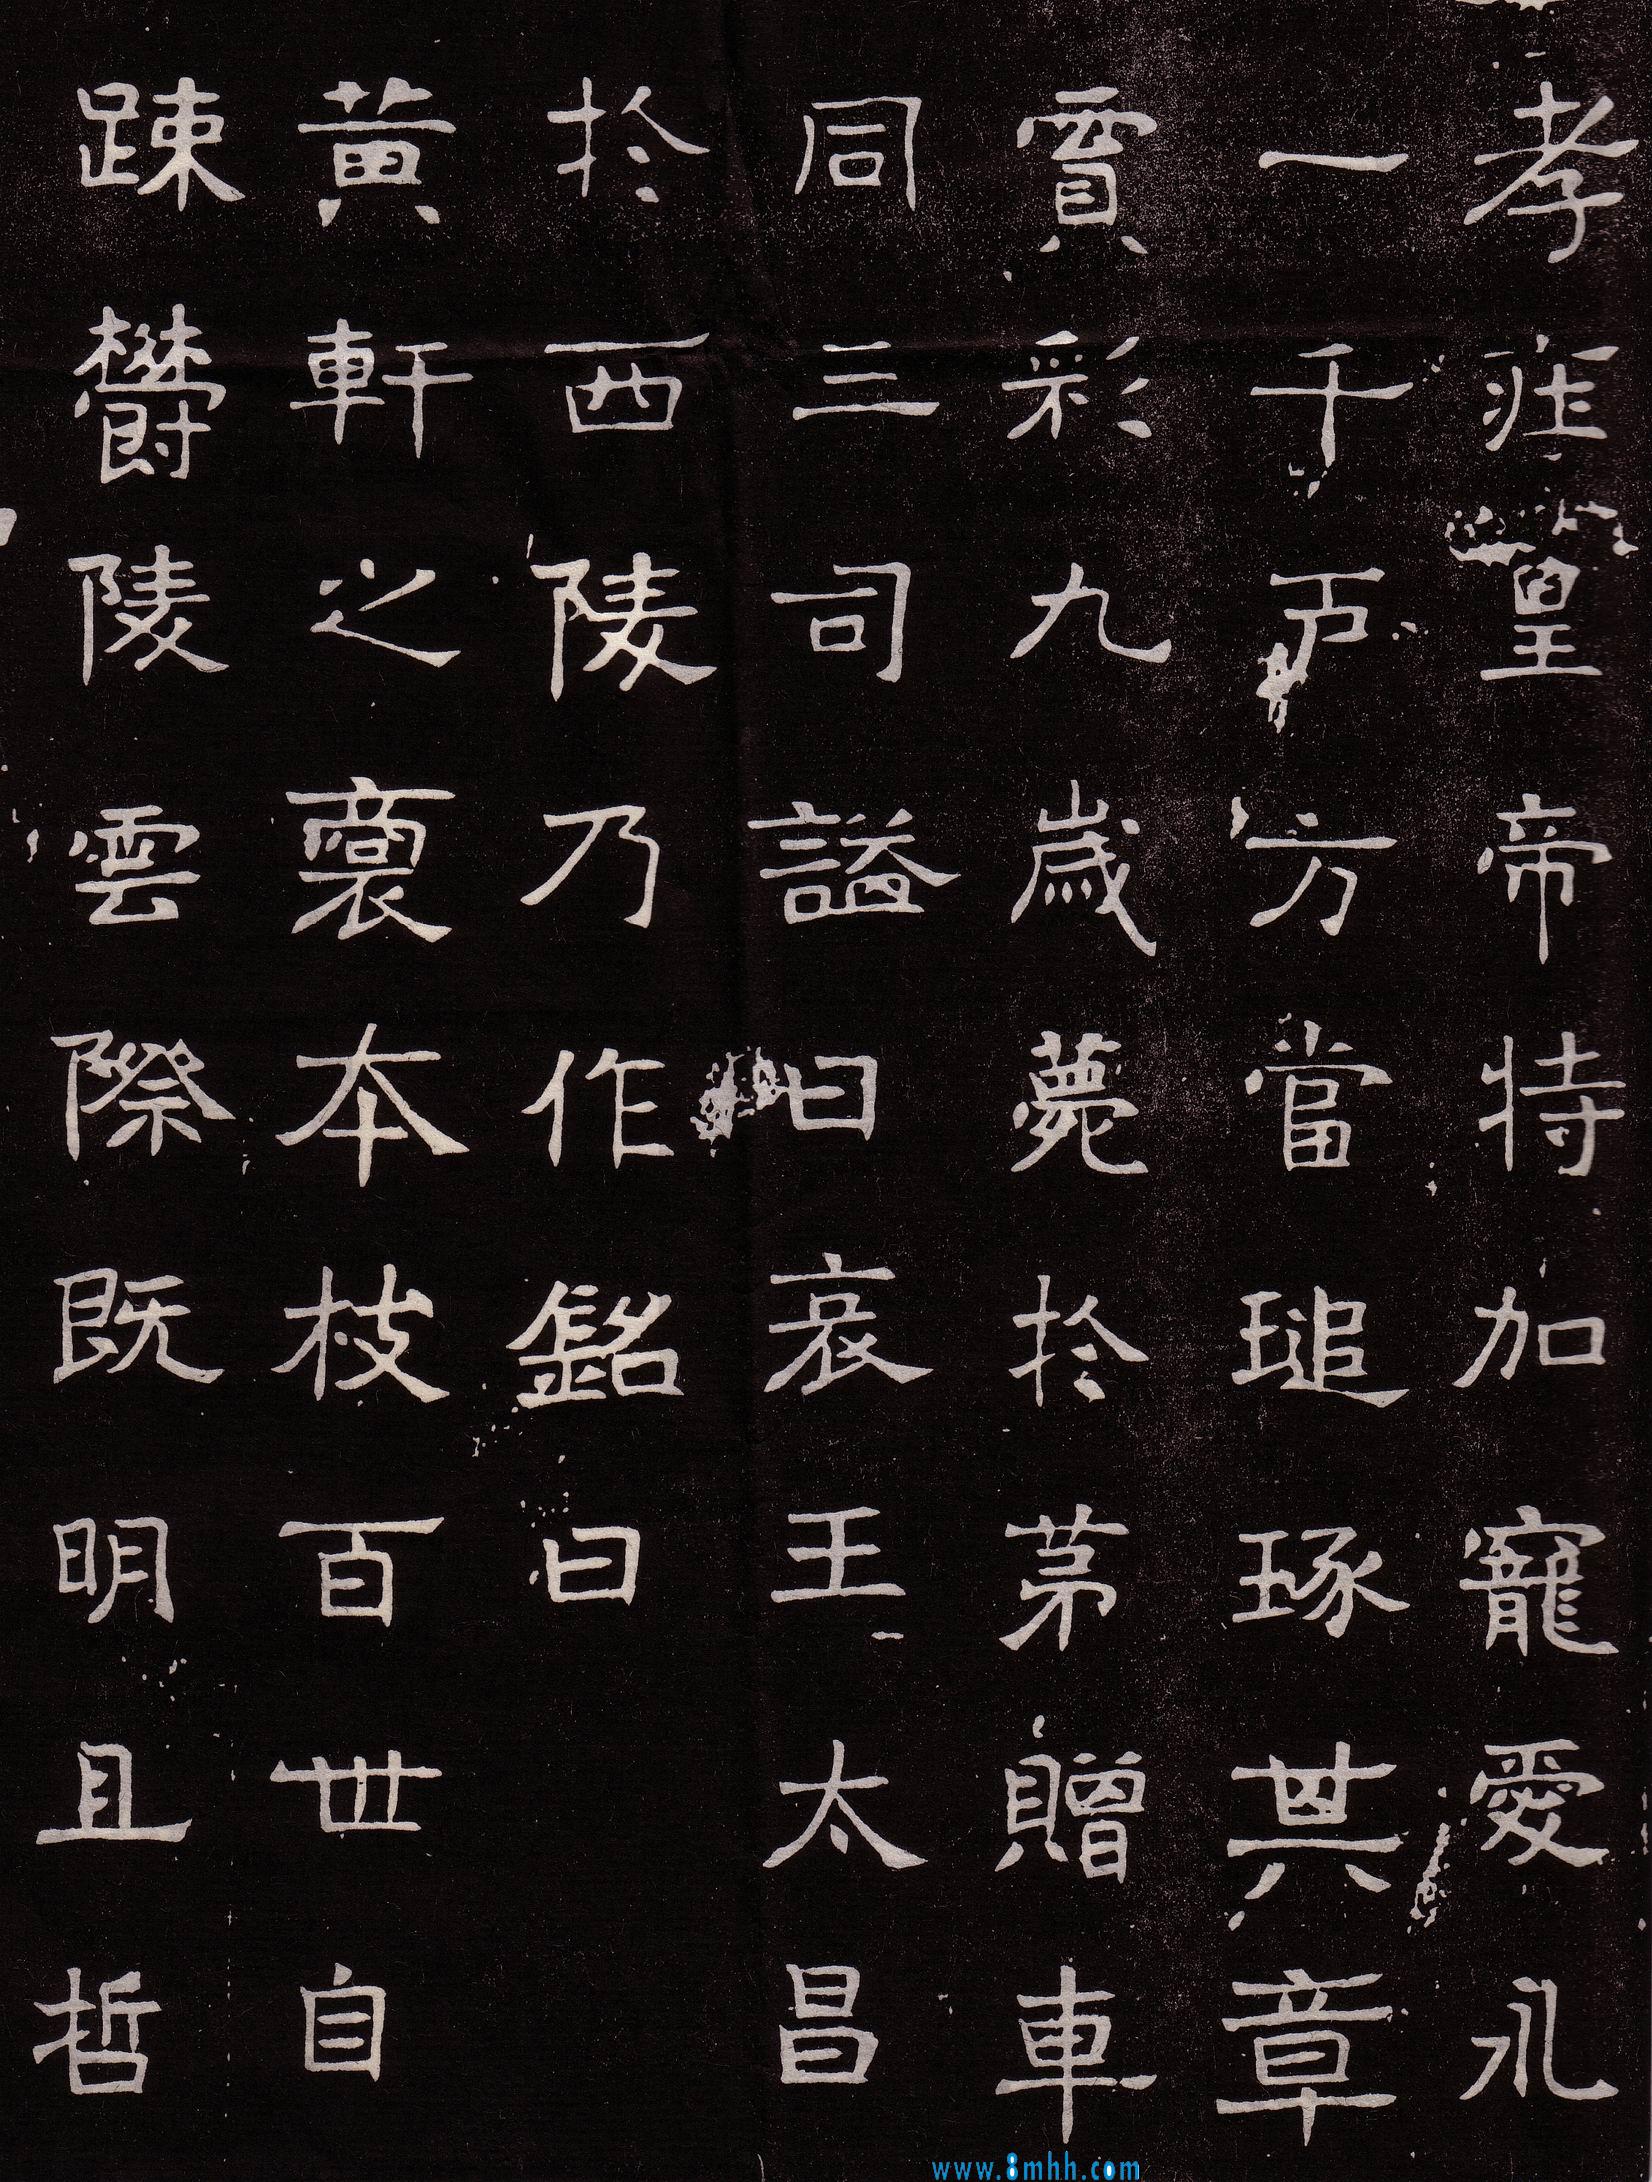 孝莊皇帝特加寵愛永
一千戶方當琢琢其章
賁彩九歲薨於茅贈車
同三司謚曰哀王太昌
於西陵乃作銘曰
黃軒之裔本枝百世自
疎欝陵雲際既明且哲
www.8mhh.com